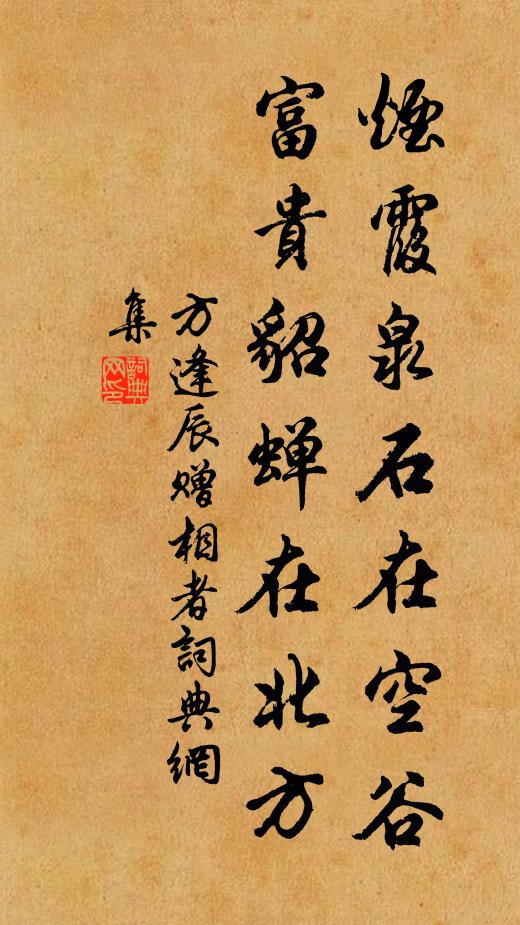 煙霞泉石在空谷
富貴貂蟬在北方
方逢辰贈相者詞典網
集
詞典
网印